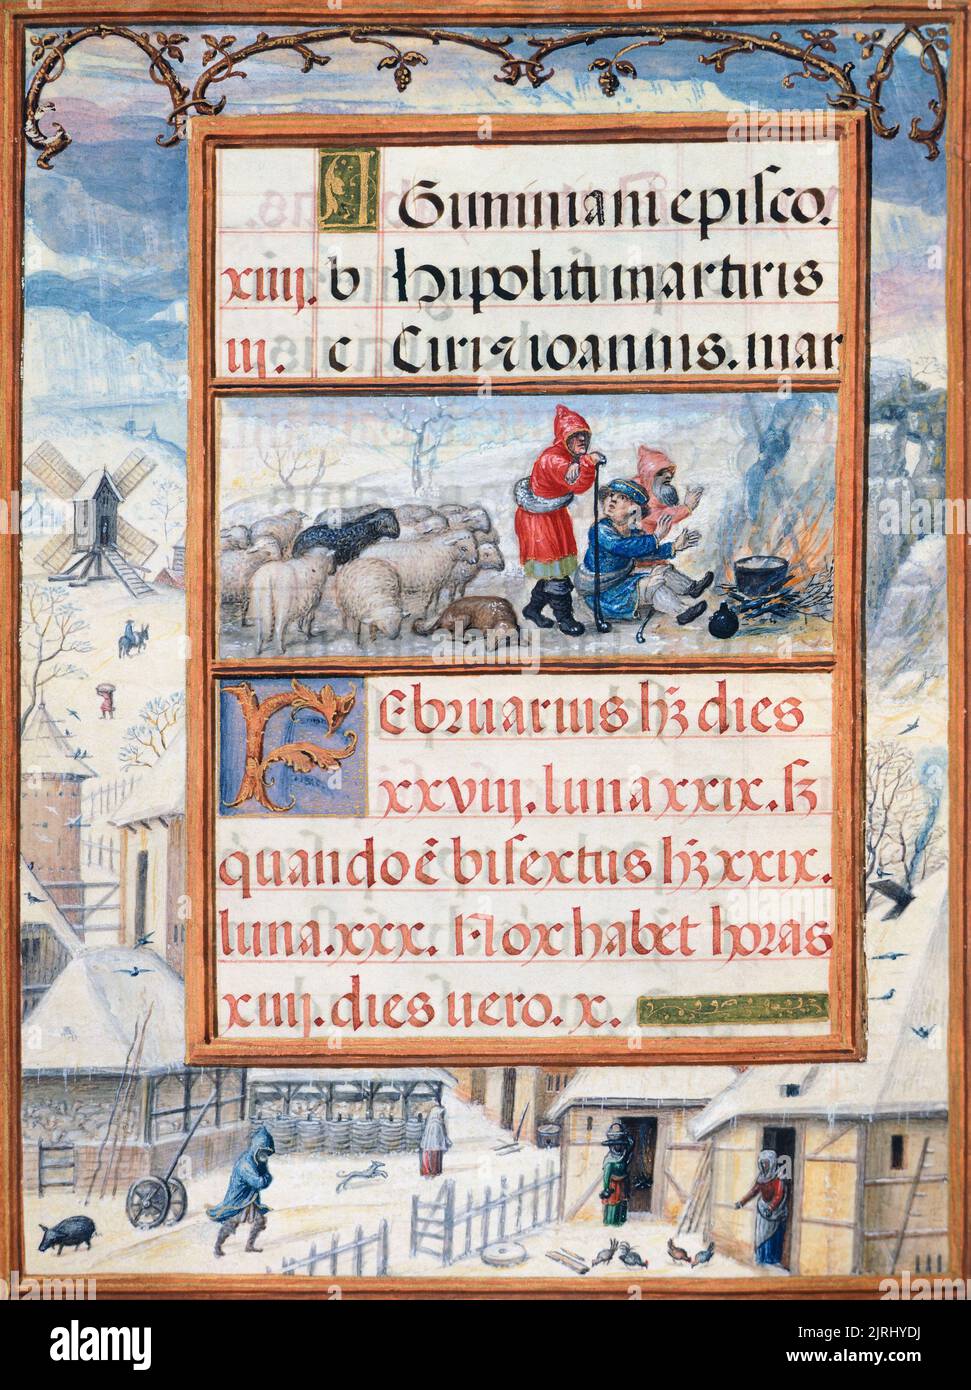 A Giminiani episco.
xiiij. b Hipoliti martiris
iij. c Ciri ⁊ ioannis. mar
FEbruarius hꝫ dies
xxviij. luna xxix. sꝫ
quando ē bisextus hꝫ xxix.
luna. xxx. Nox habet horas
xiiij. dies uero. x.
alamy
Image ID: 2JRHYDJ
www.alamy.com